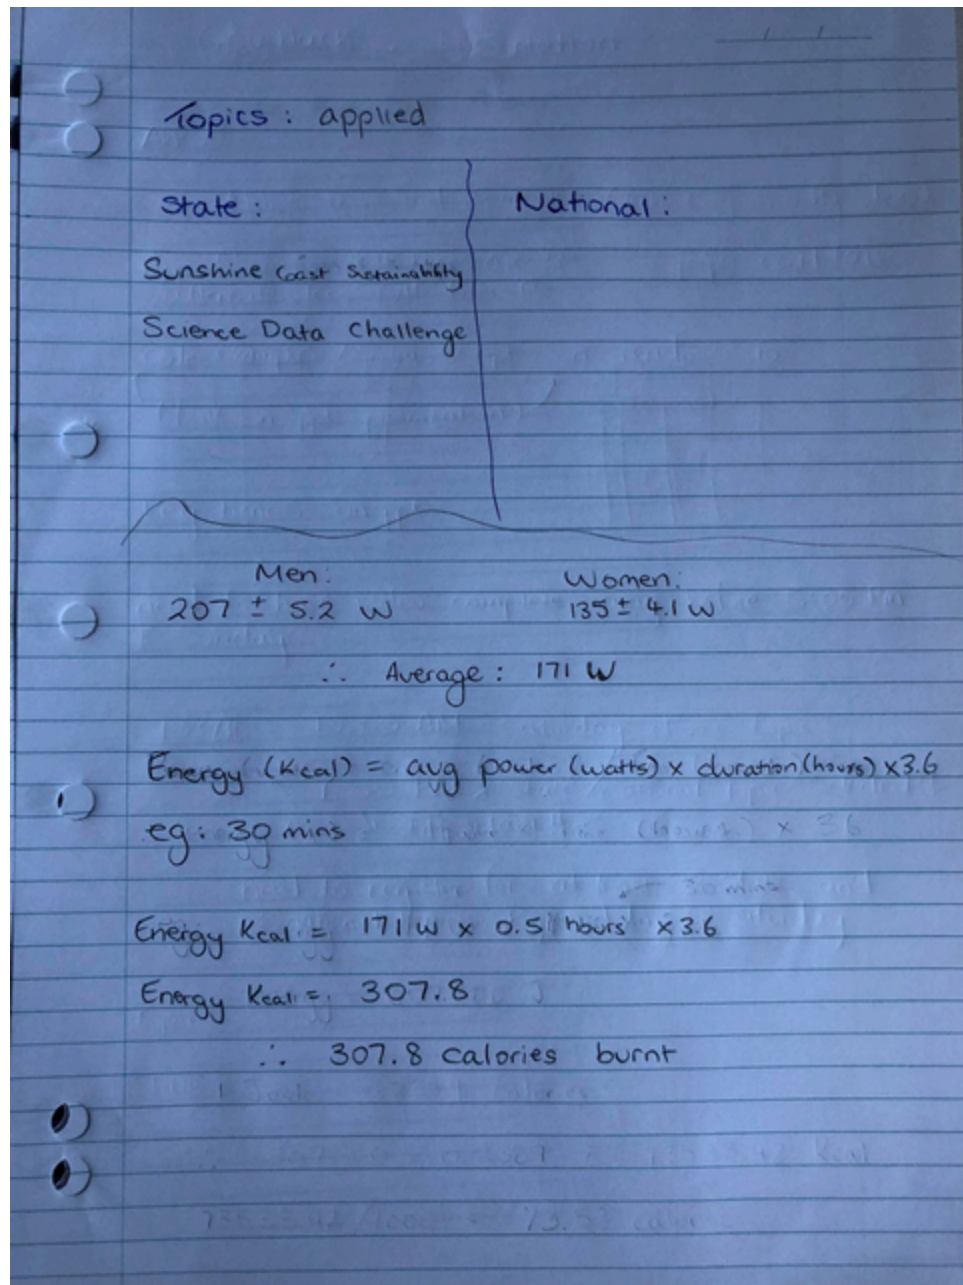 Topics : applied
State :
Sunshine Coast Sustainability
Science Data Challenge
National :
Men:
207 ± 5.2 W
Women:
135 ± 4.1 W
∴ Average : 171 W
Energy (Kcal) = avg power (watts) x duration (hours) x 3.6
eg: 30 mins
Energy Kcal = 171 W x 0.5 hours x 3.6
Energy Kcal = 307.8
∴ 307.8 calories burnt